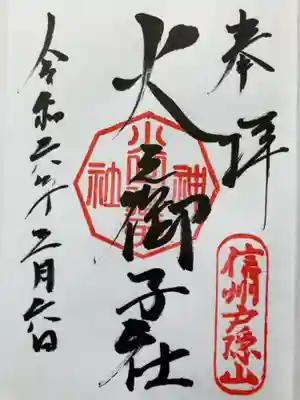 奉拝
信州戸隠山
神
火之御子社
社
令和六年三月六日